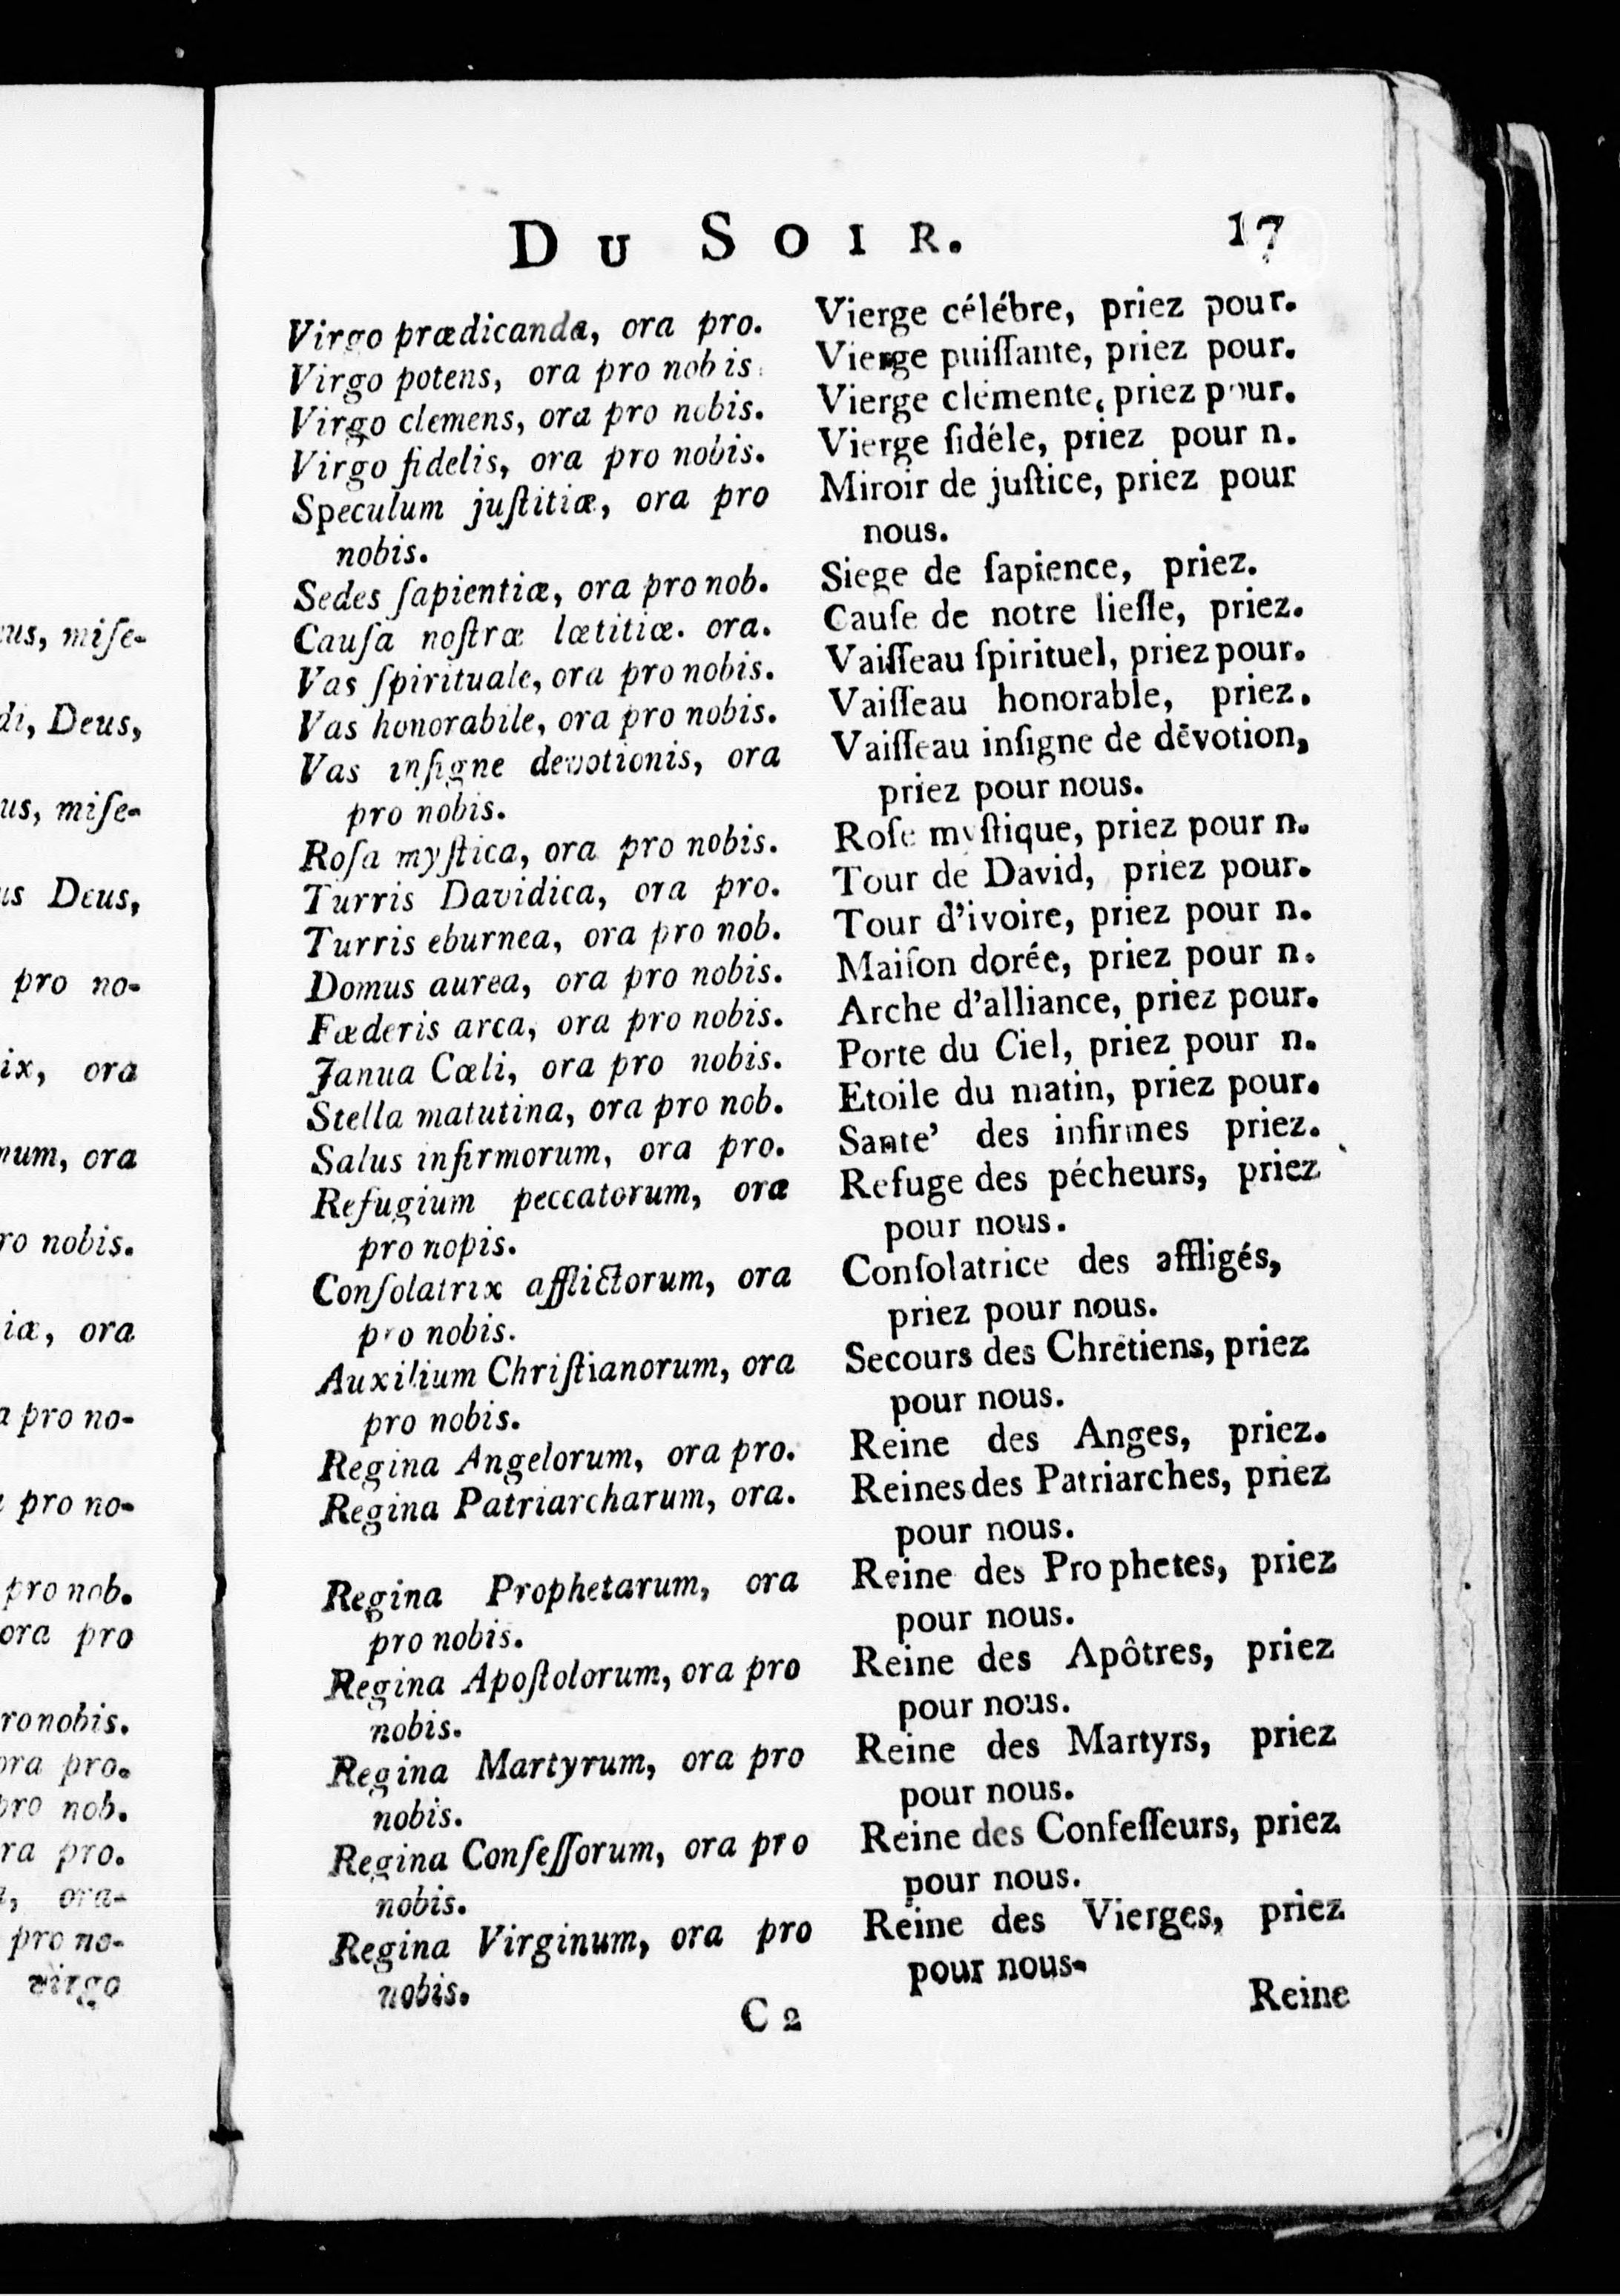 us, miſe-
di, Deus,
us, miſe-
us Deus,
pro no-
ix, ora
num, ora
ro nobis.
iæ, ora
a pro no-
pro no-
pro nob.
ora pro
ro nobis.
ora pro.
pro nob.
ra pro.
ora-
pro no-
virgo
DU SOIR. 17
Virgo prædicanda, ora pro.
Virgo potens, ora pro nobis.
Virgo clemens, ora pro nobis.
Virgo fidelis, ora pro nobis.
Speculum juſtitiæ, ora pro
nobis.
Sedes ſapientiæ, ora pro nob.
Cauſa noſtræ lætitiæ. ora.
Vas ſpirituale, ora pro nobis.
Vas honorabile, ora pro nobis.
Vas inſigne devotionis, ora
pro nobis.
Roſa myſtica, ora pro nobis.
Turris Davidica, ora pro.
Turris eburnea, ora pro nob.
Domus aurea, ora pro nobis.
Fæderis arca, ora pro nobis.
Janua Cœli, ora pro nobis.
Stella matutina, ora pro nob.
Salus infirmorum, ora pro.
Refugium peccatorum, ora
pro nopis.
Conſolatrix afflictorum, ora
pro nobis.
Auxilium Chriſtianorum, ora
pro nobis.
Regina Angelorum, ora pro.
Regina Patriarcharum, ora.
Regina Prophetarum, ora
pro nobis.
Regina Apoſtolorum, ora pro
nobis.
Regina Martyrum, ora pro
nobis.
Regina Conſeſſorum, ora pro
nobis.
Regina Virginum, ora pro
nobis.
Vierge célébre, priez pour.
Vierge puiſſante, priez pour.
Vierge clémente, priez pour.
Vierge fidéle, priez pour n.
Miroir de juſtice, priez pour
nous.
Siege de ſapience, priez.
Cauſe de notre lieſſe, priez.
Vaiſſeau ſpirituel, priez pour.
Vaiſſeau honorable, priez.
Vaiſſeau inſigne de dévotion,
priez pour nous.
Roſe myſtique, priez pour n.
Tour de David, priez pour.
Tour d'ivoire, priez pour n.
Maiſon dorée, priez pour n.
Arche d'alliance, priez pour.
Porte du Ciel, priez pour n.
Etoile du matin, priez pour.
Sante' des infirmes priez.
Refuge des pécheurs, priez
pour nous.
Conſolatrice des affligés,
priez pour nous.
Secours des Chrêtiens, priez
pour nous.
Reine des Anges, priez.
Reines des Patriarches, priez
pour nous.
Reine des Prophetes, priez
pour nous.
Reine des Apôtres, priez
pour nous.
Reine des Martyrs, priez
pour nous.
Reine des Confeſſeurs, priez
pour nous.
Reine des Vierges, priez
pour nous.
C 2 Reine